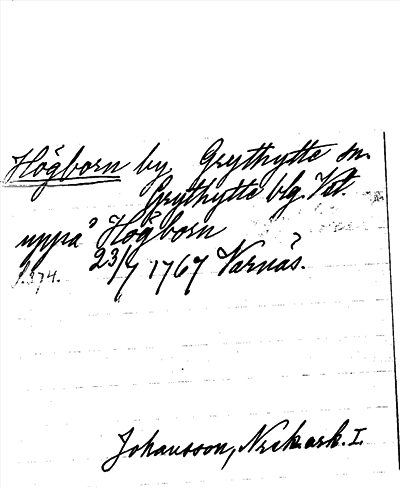 Högborn by Grythytte sn.
Grythytte blg. Vtl.
uppå Högborn
23/7 1767 Varnäs.
s. 374.
Johansson, Noraskog. I.